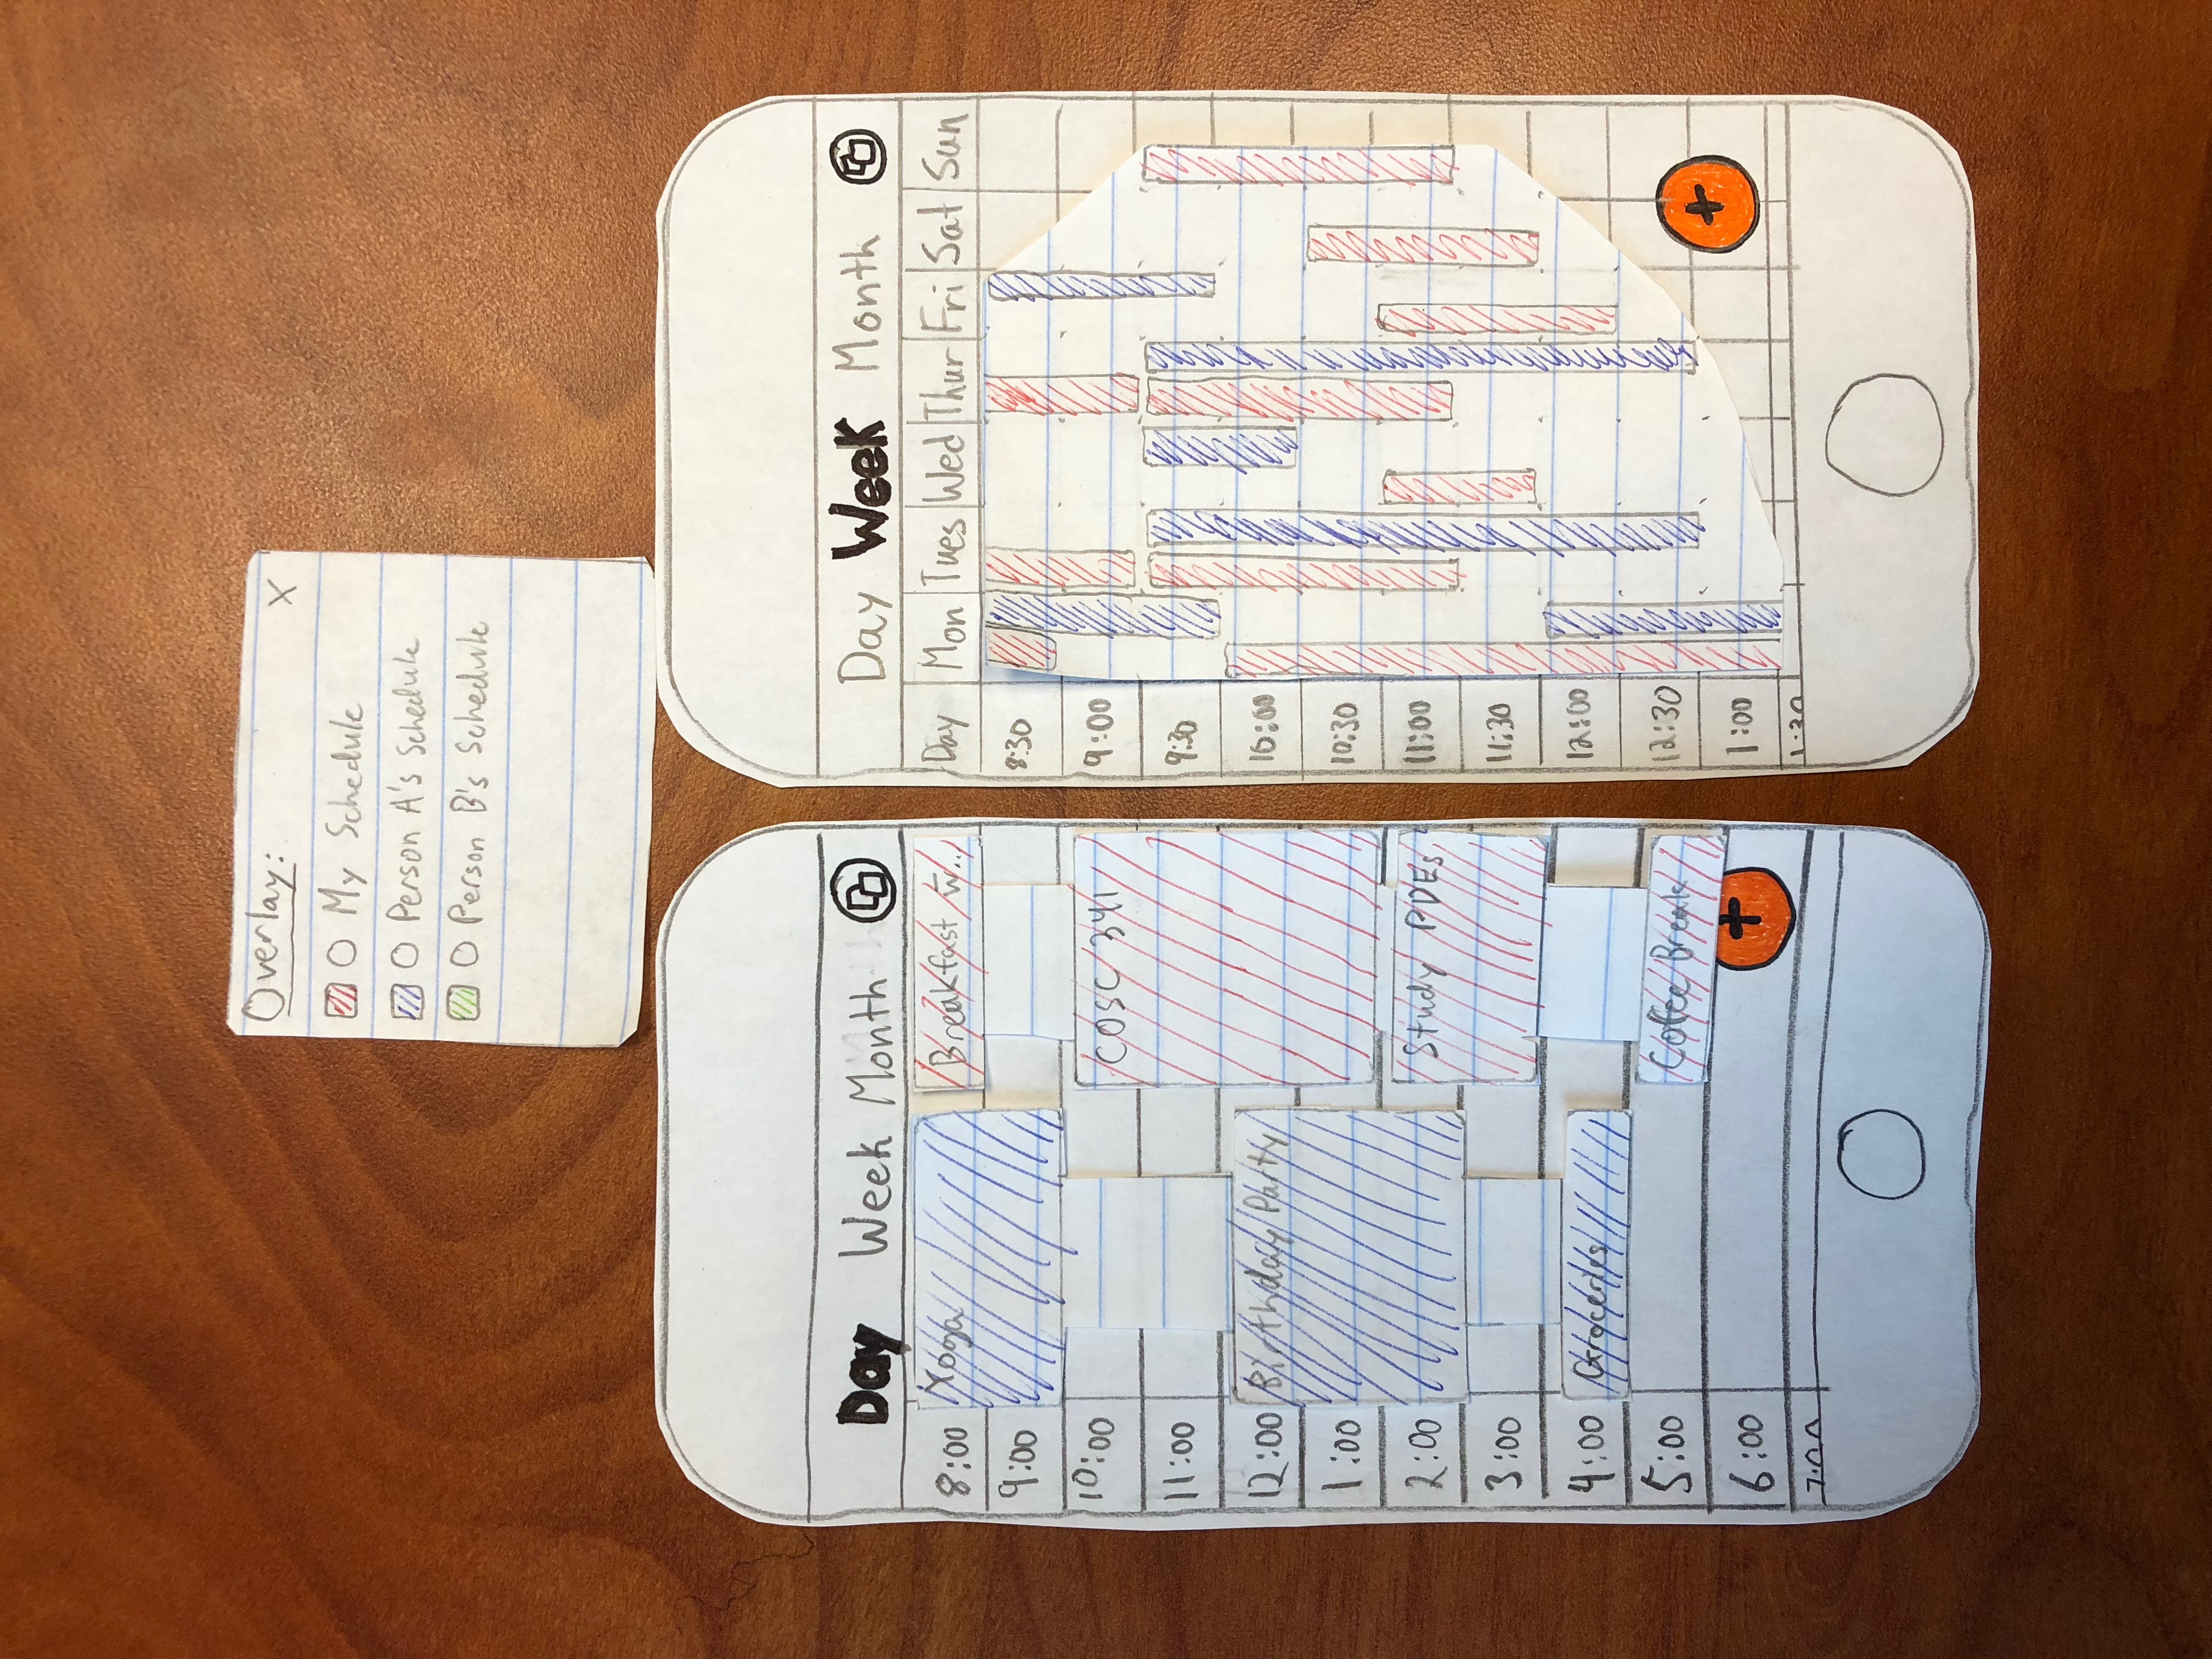 Overlay: X
My Schedule
Person A's Schedule
Person B's Schedule
Day Week Month
8:00 Yoga Breakfast w...
9:00
10:00 COSC 341
11:00
12:00 Birthday Party
1:00
2:00 Study PDEs
3:00
4:00 Groceries
5:00 Coffee Break
6:00 +
7:00
Day Week Month
Day Mon Tues Wed Thur Fri Sat Sun
8:30
9:00
9:30
10:00
10:30
11:00
11:30
12:00
12:30
+
1:00
1:30